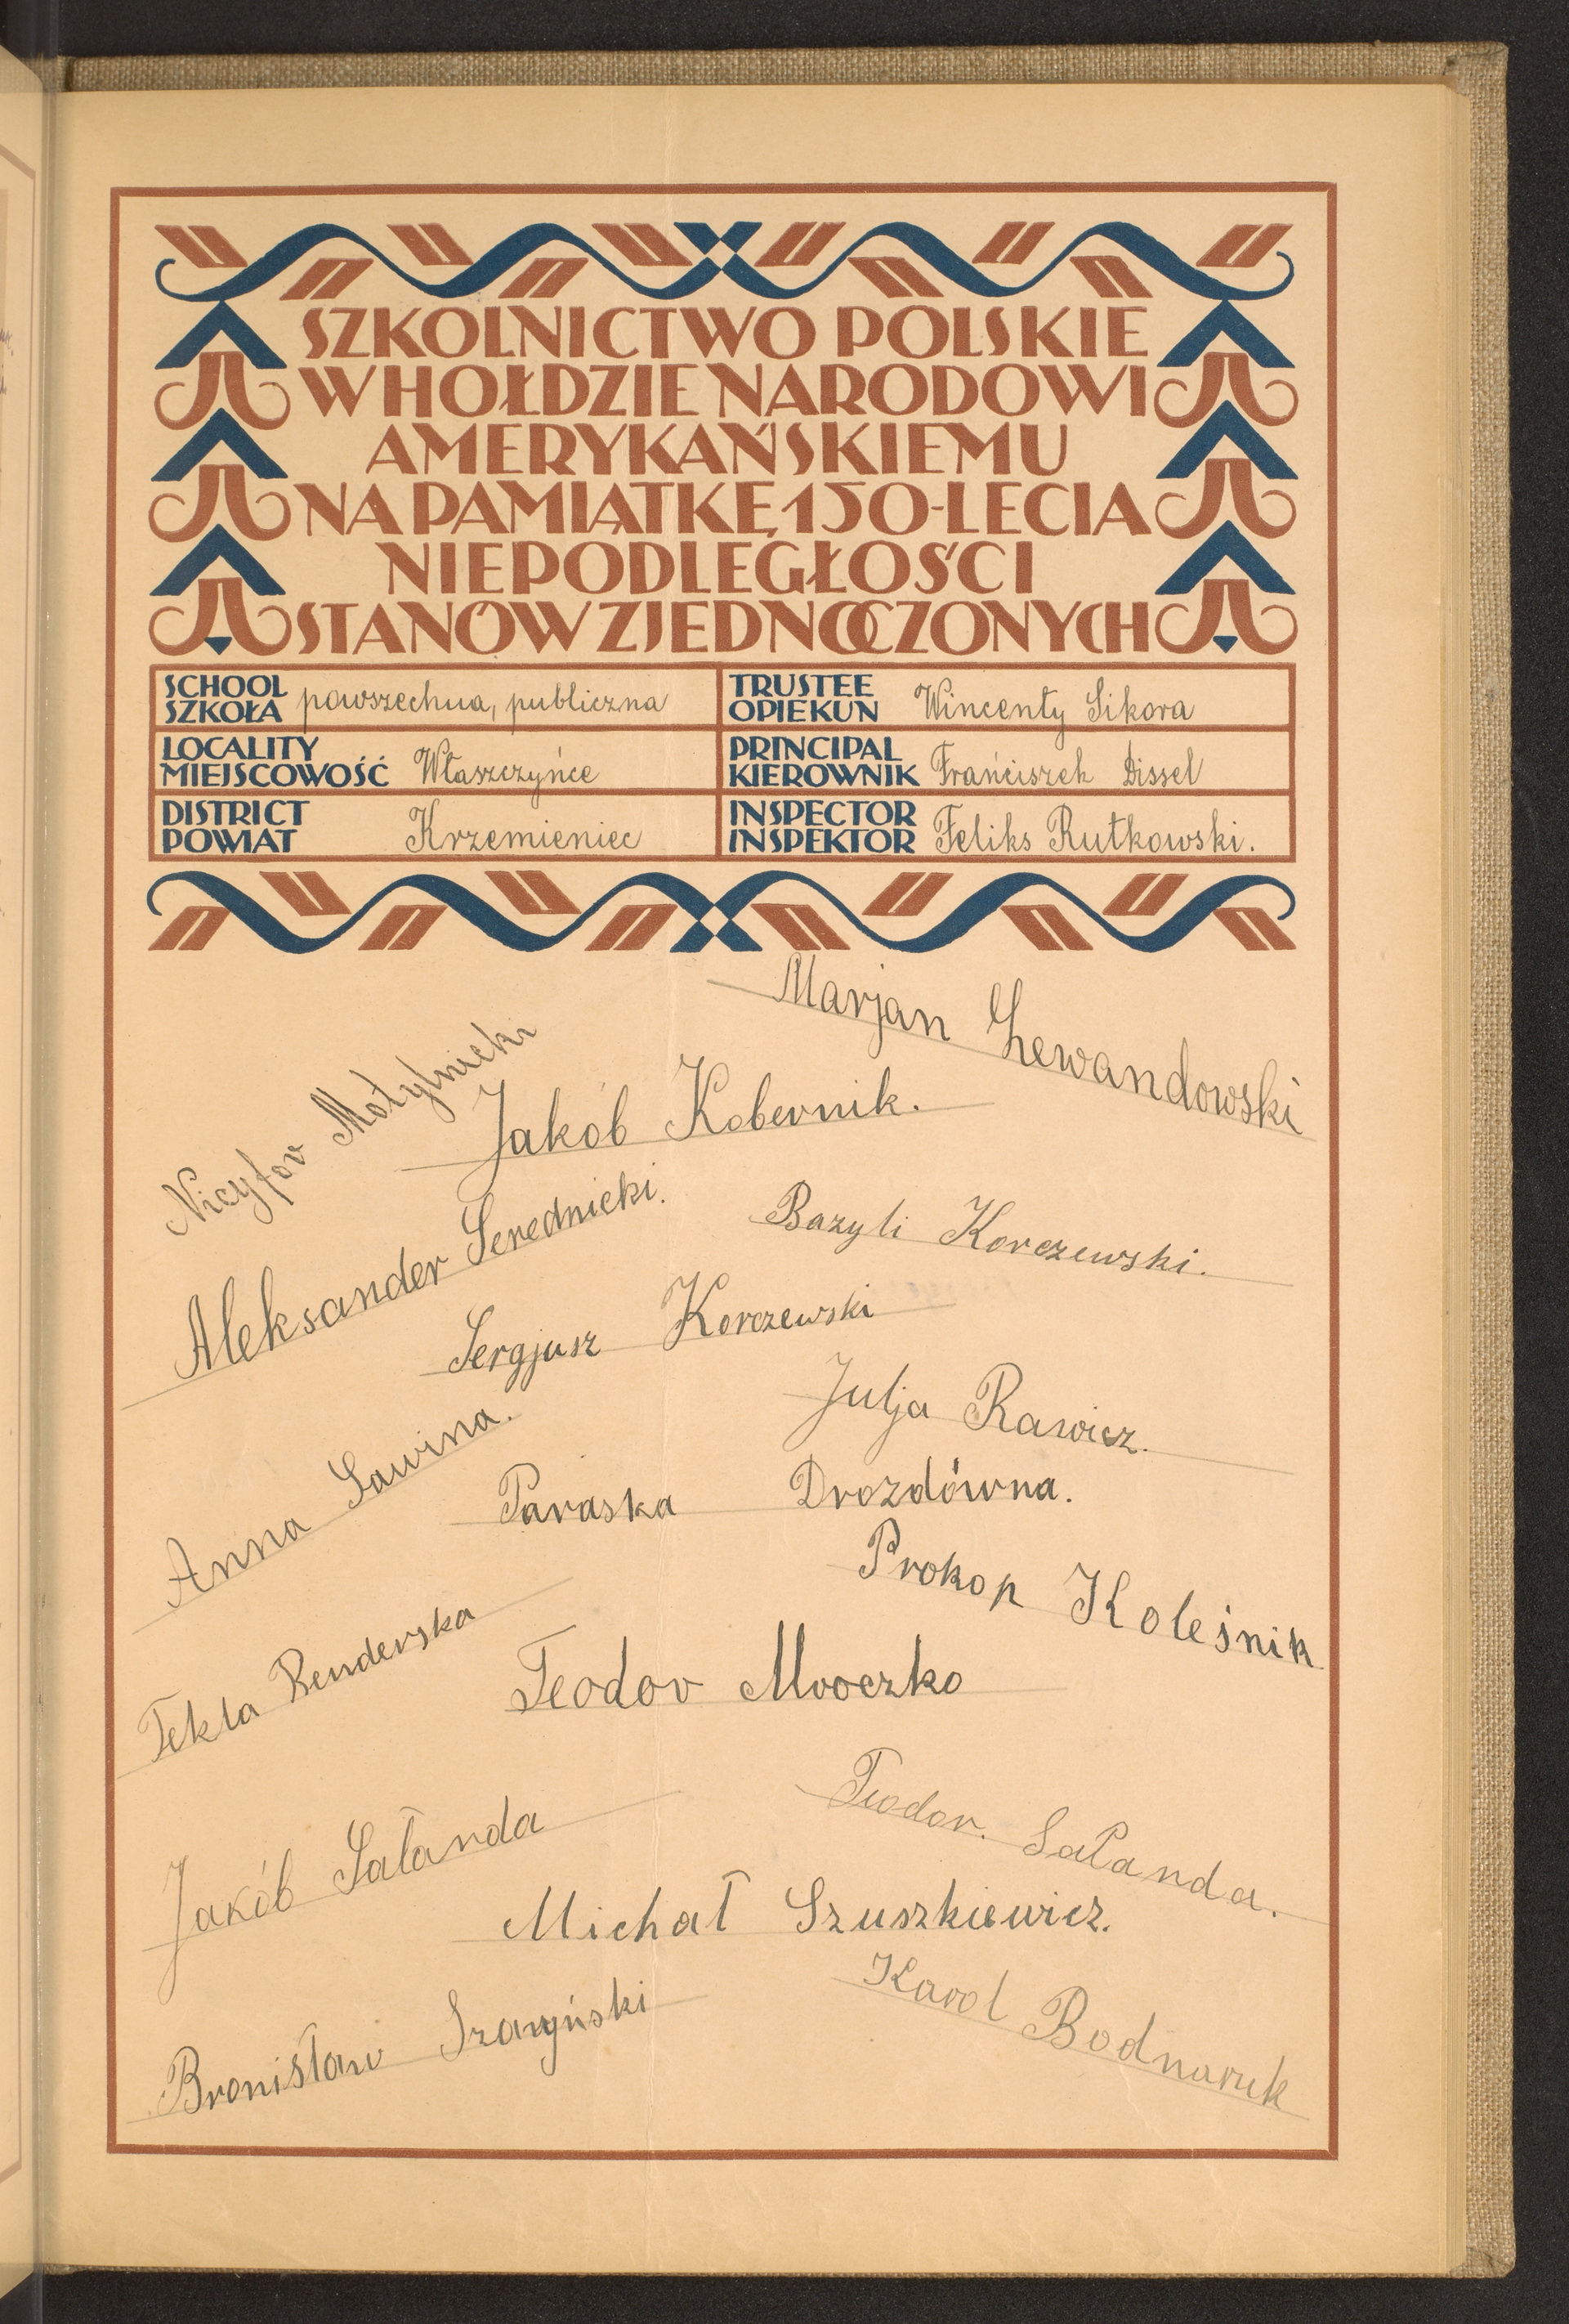 SZKOLNICTWO POLSKIE
W HOŁDZIE NARODOWI
AMERYKAŃSKIEMU
NA PAMIĄTKĘ 150-LECIA
NIEPODLEGŁOŚCI
STANÓW ZJEDNOCZONYCH
SCHOOL
SZKOŁA powszechna, publiczna
TRUSTEE
OPIEKUN Wincenty Sikora
LOCALITY
MIEJSCOWOŚĆ Właszczyńce
PRINCIPAL
KIEROWNIK Franciszek Dissel
DISTRICT
POWIAT Krzemieniec
INSPECTOR
INSPEKTOR Feliks Rutkowski.
Marjan Lewandowski
Nicyfor Motylnicki
Jakób Kobernik.
Aleksander Serednicki.
Bazyli Korczewski.
Sergjusz Korczewski
Julja Rawicz.
Anna Sawina.
Paraska Drozdówna.
Prokop Koleśnik
Tekla Benderska
Teodor Mroczko
Teodor. Sałanda.
Jakób Sałanda
Michał Szuszkiewicz.
Karol Bodnaruk
Bronisław